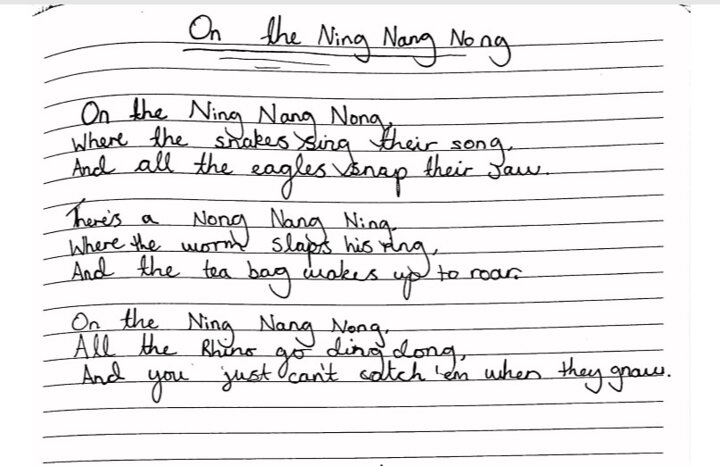 On the Ning Nang Nong
On the Ning Nang Nong,
Where the snakes sing their song,
And all the eagles snap their jaw.
There's a Nong Nang Ning.
Where the worm slaps his ring,
And the tea bag wakes up to roar.
On the Ning Nang Nong,
All the Rhino go ding dong,
And you just can't catch 'em when they gnaw.